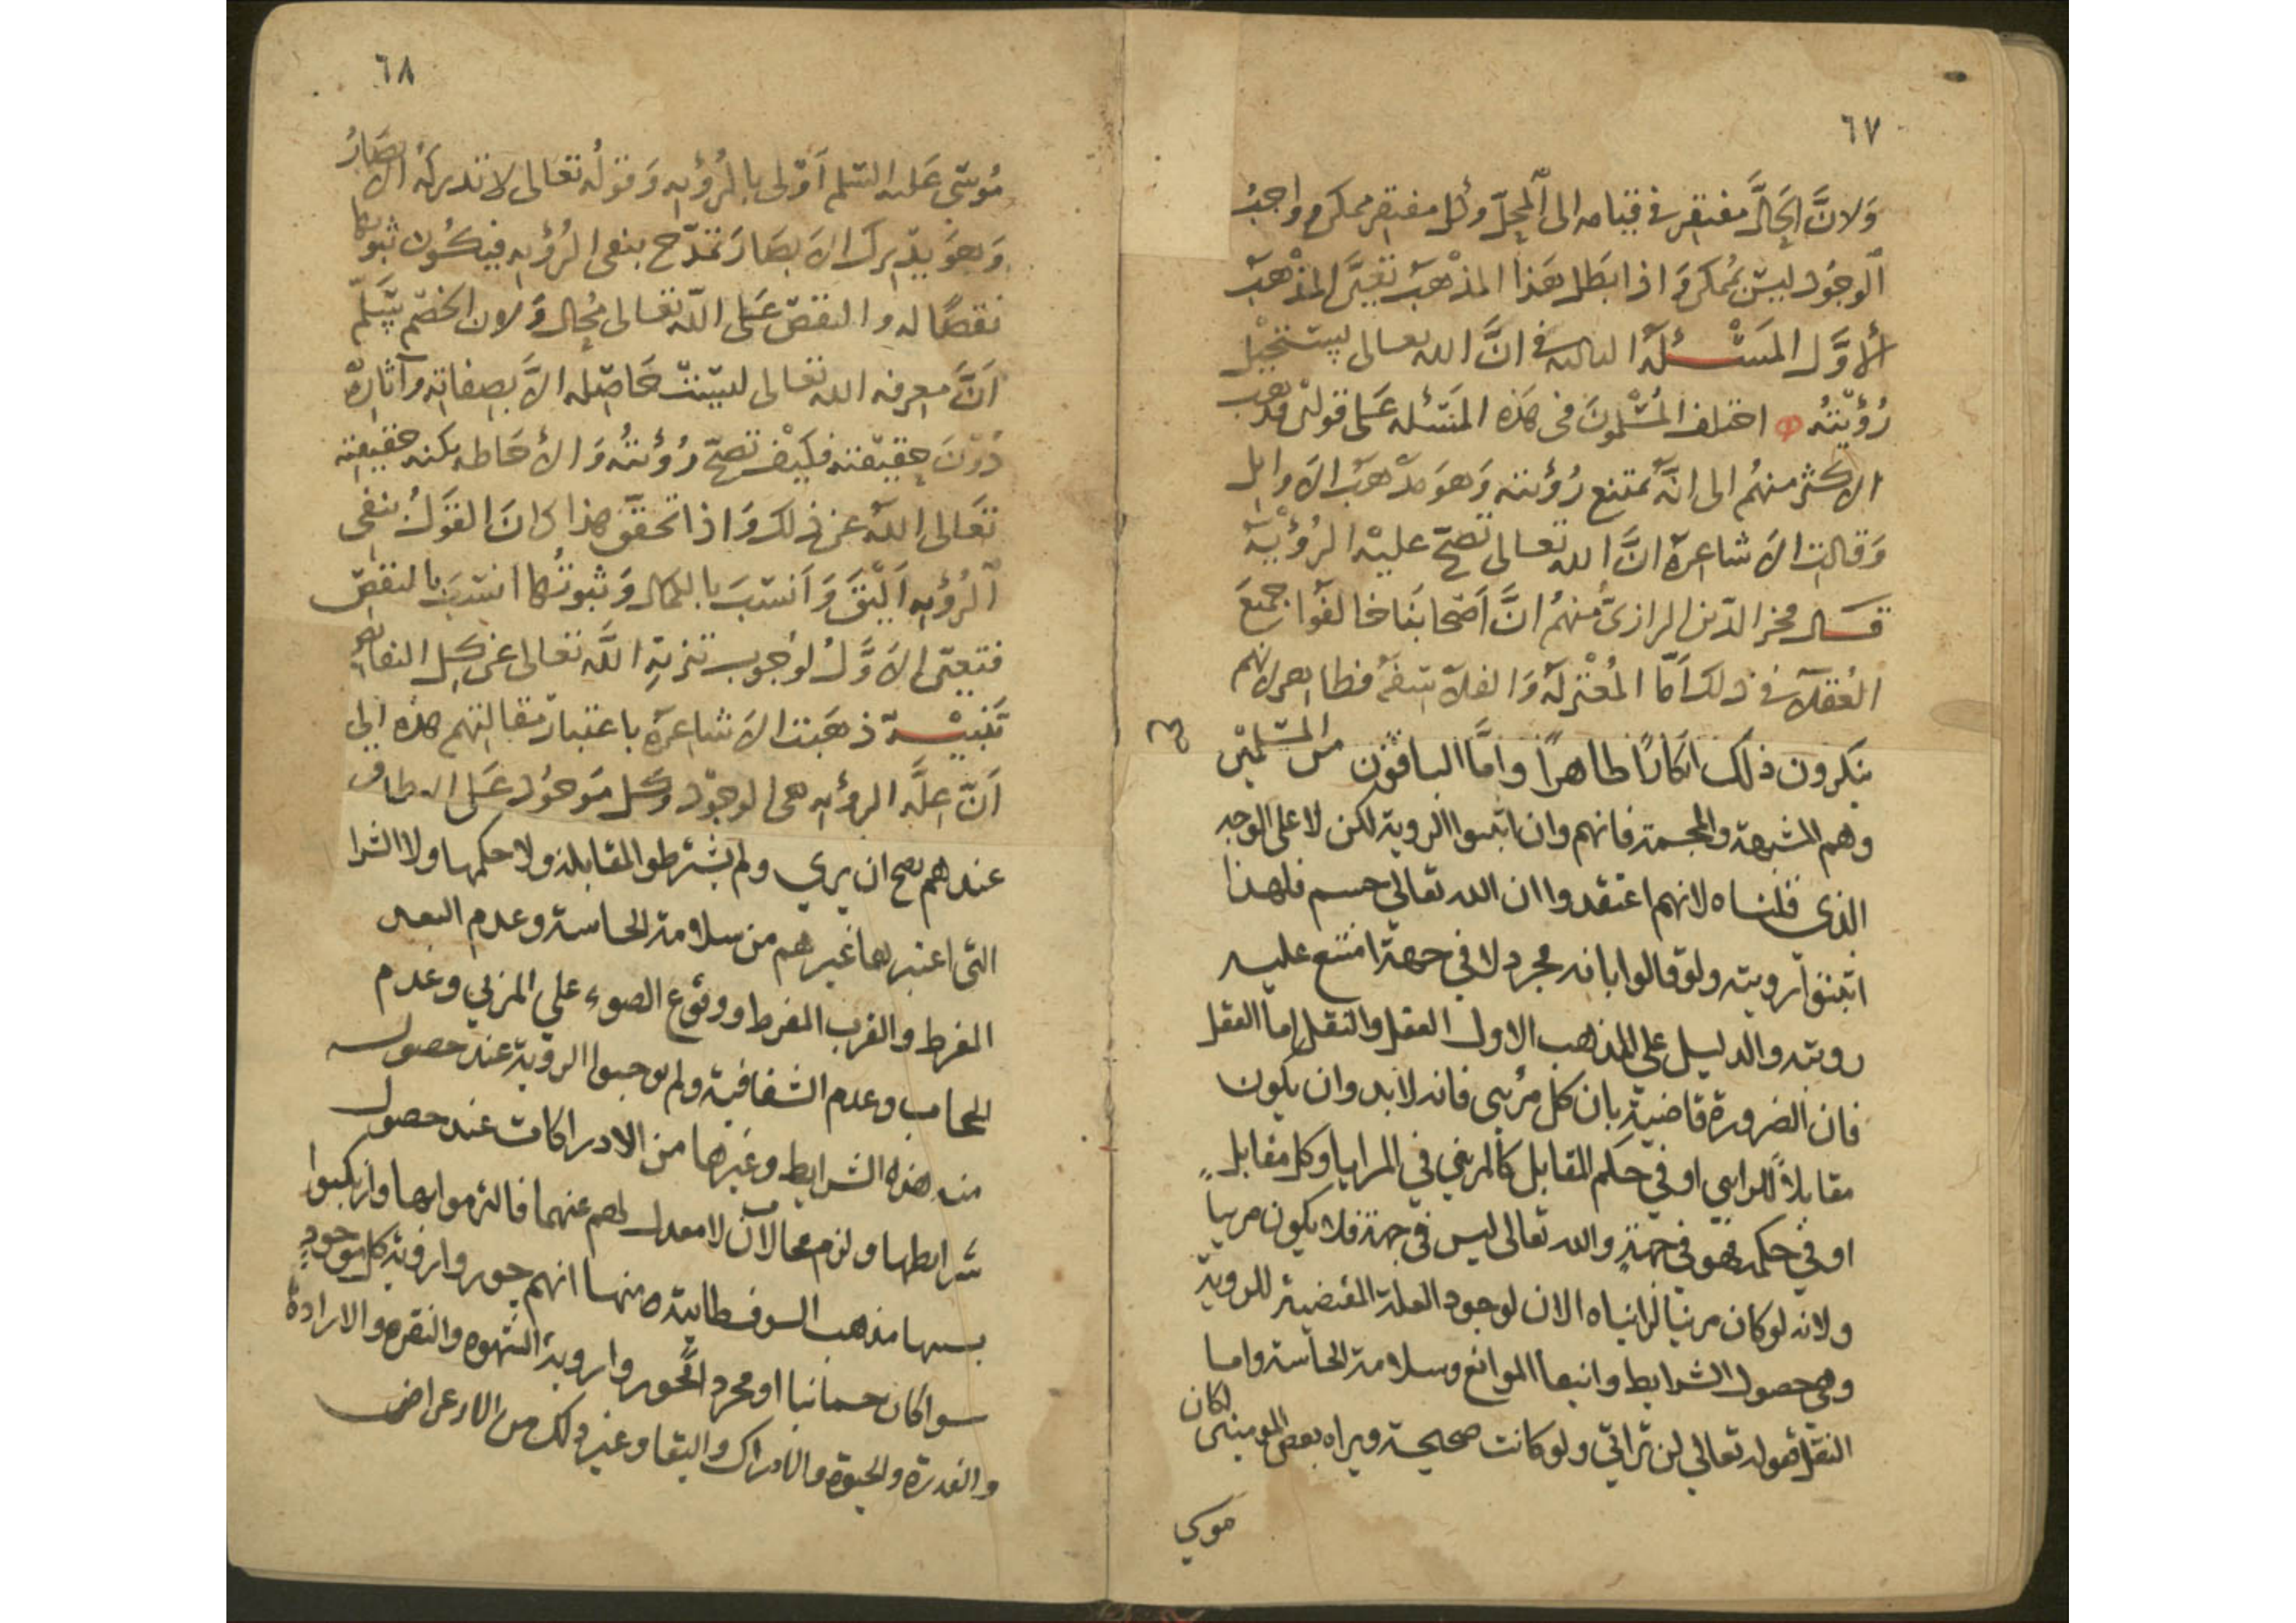 ٦٧
وَلانَّ الحَالَّ مفتقر في قيامه الى المحِلّ وكُل مفتقر ممكن وواجبُ
الوجُود ليسَ بمُمكن وَاذا بَطل هَذا المذْهبَ تعيَّن المذْهبَ
الأوَّل المَسْئلة الثالثه في انَّ الله تعالى يستحيل
رُؤيتُه اختلف المُسْلمونَ في هَذه المَسْئله عَلى قولين فذهب
الاكثر منهُم الى انَّه يمتنع رُؤيته وَهوَ مذْهبَ الاوايل
وَقالت الاَشاعرة انَّ الله تعالى تصحّ عليْه الرُؤيَة
قال فخر الدّين الرازىّ منهُم انَّ اَصْحَابنَا خالفوا جميعَ
العُقلآ في ذلك اَمّا المُعْتزلة وَالفلاسفة فظاهر لانهم
ينكرون ذلك انكارًا ظاهرًا وامَّا الباقون من المسلمين
وهم المشبهة والمجسمة فانهم وان اثبتوا الروية لكن لا على الوجه
الذى قلناه لانهم اعتقدوا ان الله تعالي جسم فلهذا
اثبتوا رويته ولو قالوا بانه مجرد لا في جهة امتنع عليه
رويته والدليل علي المذهب الاول العقل والنقل اما العقل
فان الضرورة قاضية بان كل مرئي فانه لابد وان يكون
مقابلاً للراىي او في حكم المقابل كالمرئي في المرايا وكل مقابل
او في حكمه فهو في جهةٍ والله تعالى ليس في جهة فلا يكون مرىياً
ولانه لو كان مرئيا لرايناه الان لوجود العلة المقتضية للروية
وهي حصول الشرايط وانتفا الموانع وسلامة الحاسة واما
النقل فقوله تعالي لن تراني ولو كانت صحيحة ويراه بعض المومنين لكان
موسي
٦٨
مُوسَى عَليه السّلم اَوْلى بالرُؤيه وَقولُه تعَالى لا تدركهُ الابصَارُ
وَهوَ يدْرِك الاَبصَارَ تمدّح بنفى الرُؤيه فيكُون ثبوتها
نقصًا له والنقصّ عَلى الله تعَالى مُحال وَلان الخصْم يسَلّم
اَنَّ معرفه الله تعَالى ليسَت حَاصله الاَّ بصفاته وآثاره
دُوْنَ حقيقته فكيْف تصحّ رُؤيتُه وَالأحَاطه بكنه حقيقته
تعَالى الله عن ذلك وَاذا تحقق هذا كانَ القوَلُ بنفى
الرُؤيه اَليَق وَاَنسَبَ بالكمال وَثبوتُها انسَبَ بالنقصّ
فتعيّن الاَوَّلُ لوُجُوب تنزيهِ اللَّه تعَالى عن كل النقائص
تَنبيْه ذهَبت الاَشاعرة باعتبار مقالتهم هذه الى
اَنّ علَّه الرؤيه هى الوجوْد وَكل مَوجُود عَلى الاطلاق
عندهم يصح ان يري ولم يشترطو المقابلة ولا حكمها ولا الشرا
التى اعتبرها غيرهم من سلامة الحاسة وعدم البعد
المفرط والقرب المفرط ووقوع الضوء علي المرئي وعدم
الحجاب وعدم الشفافية ولم يوجبوا الروية عند حصول
هذه الشرايط وغيرها من الادراكات عند حصول
شرايطها ولزم محالات لا معدل لهم عنهما فالتزموا بها وارتكبوا
بسببها مذهب السوفسطايية منها انهم جوروا روية كل موجودٍ
سوا كان جسمانيا او مجردا فجوروا روية الشهوة والنفرة والارادة
والقدرة والحيوة والادراك والبقا وغير ذلك من الاعراض